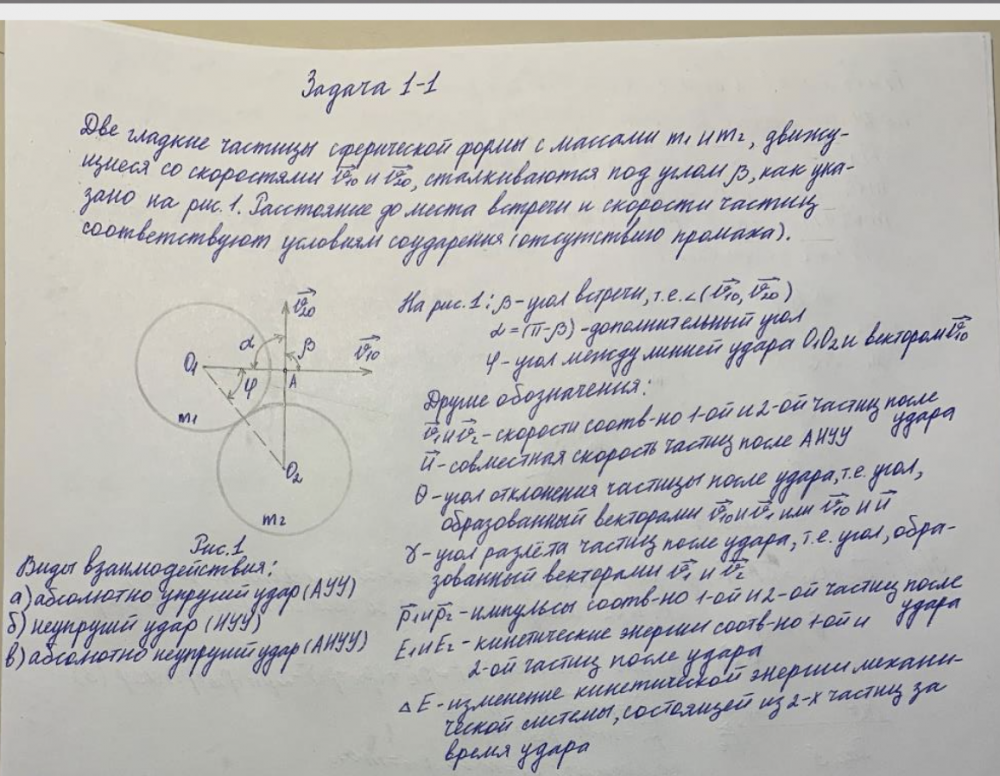 Задача 1-1
Две гладкие частицы сферической формы с массами m1 и m2, движу-
щиеся со скоростями v⃗10 и v⃗20, сталкиваются под углом β, как ука-
зано на рис. 1. Расстояние до места встречи и скорости частиц
соответствуют условиям соударения (отсутствию промаха).
v⃗20
α
β
v⃗10
O1
φ
A
m1
O2
m2
Рис.1
Виды взаимодействия:
а) абсолютно упругий удар (АУУ)
б) неупругий удар (НУУ)
в) абсолютно неупругий удар (АНУУ)
На рис. 1: β - угол встречи, т.е. ∠(v⃗10, v⃗20)
α = (π-β) - дополнительный угол
φ - угол между линией удара O1O2 и вектором v⃗10
Другие обозначения:
v⃗1 и v⃗2 - скорости соотв-но 1-ой и 2-ой частиц после
удара
u⃗ - совместная скорость частиц после АНУУ
θ - угол отклонения частицы после удара, т.е. угол,
образованный векторами v⃗10 и v⃗1 или v⃗10 и u⃗
γ - угол разлёта частиц после удара, т.е. угол, обра-
зованный векторами v⃗1 и v⃗2
p⃗1 и p⃗2 - импульсы соотв-но 1-ой и 2-ой частиц после
удара
E1 и E2 - кинетические энергии соотв-но 1-ой и
2-ой частиц после удара
ΔE - изменение кинетической энергии механи-
ческой системы, состоящей из 2-х частиц за
время удара